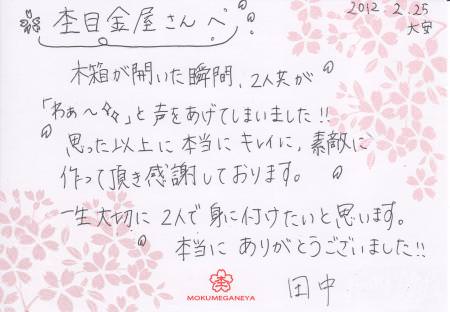 2012.2.25
大安
杢目金屋さんへ
木箱が開いた瞬間、2人共が
「わぁ〜✧✧」と声をあげてしまいました!!
思った以上に本当にキレイに、素敵に
作って頂き感謝しております。
一生大切に2人で身に付けたいと思います。
本当にありがとうございました!!
MOKUMEGANEYA
田中